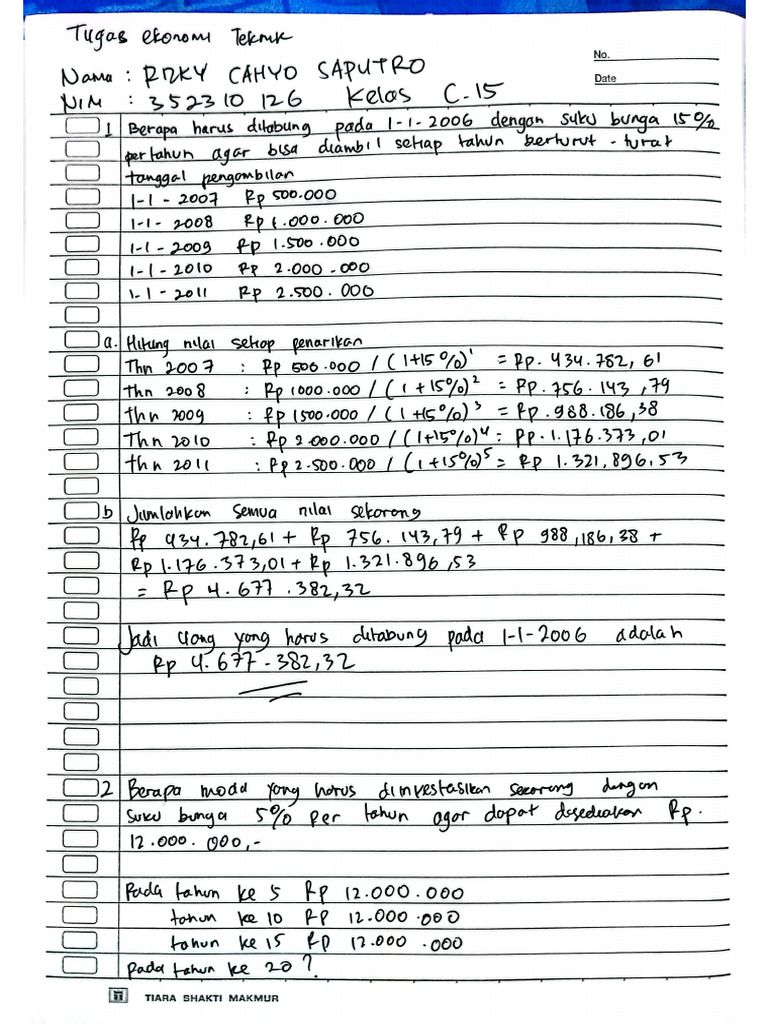 Tugas ekonomi Teknik
No.
Nama : RIZKY CAHYO SAPUTRO
Date
NIM : 352310126 Kelas C-15
1 Berapa harus ditabung pada 1-1-2006 dengan suku bunga 15%
pertahun agar bisa diambil setiap tahun berturut-turut
tanggal pengambilan
1-1-2007 Rp 500.000
1-1-2008 Rp 1.000.000
1-1-2009 Rp 1.500.000
1-1-2010 Rp 2.000.000
1-1-2011 Rp 2.500.000
a. Hitung nilai setiap penarikan
Thn 2007 : Rp 500.000 / (1+15%)¹ = Rp. 434.782,61
thn 2008 : Rp 1000.000 / (1+15%)² = Rp. 756.143,79
thn 2009 : Rp 1500.000 / (1+15%)³ = Rp. 988.186,38
Thn 2010 : Rp 2.000.000 / (1+15%)⁴ = Rp. 1.176.373,01
thn 2011 : Rp 2.500.000 / (1+15%)⁵ = Rp 1.321,896,53
b Jumlahkan semua nilai sekarang
Rp 434.782,61 + Rp 756.143,79 + Rp 988,186,38 +
Rp 1.176.373,01 + Rp 1.321.896,53
= Rp 4.677.382,32
Jadi uang yang harus ditabung pada 1-1-2006 adalah
Rp 4.677.382,32
2 Berapa modal yang harus diinvestasikan sekarang dengan
suku bunga 5% per tahun agar dapat disediakan Rp.
12.000.000,-
Pada tahun ke 5 Rp 12.000.000
tahun ke 10 Rp 12.000.000
tahun ke 15 Rp 12.000.000
pada tahun ke 20?
TIARA SHAKTI MAKMUR